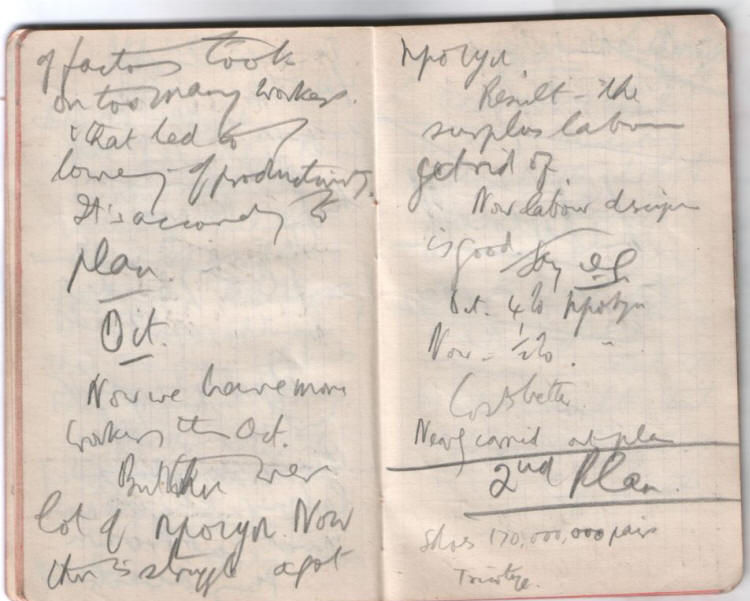 of factories took
on too many workers.
that led to
lowering of productivity.
It's according to
plan.
Oct.
Now we have more
workers than Oct.
But there were
lot of прогул. Now
there is struggle agst
прогул
Result - the
surplus labour
get rid of.
Now labour discipline
is good. Say eg
Oct. 4% прогул
Now - ½%. "
Costs better.
Nearly carried out plan
2nd Plan.
Shoes 170,000,000 pairs